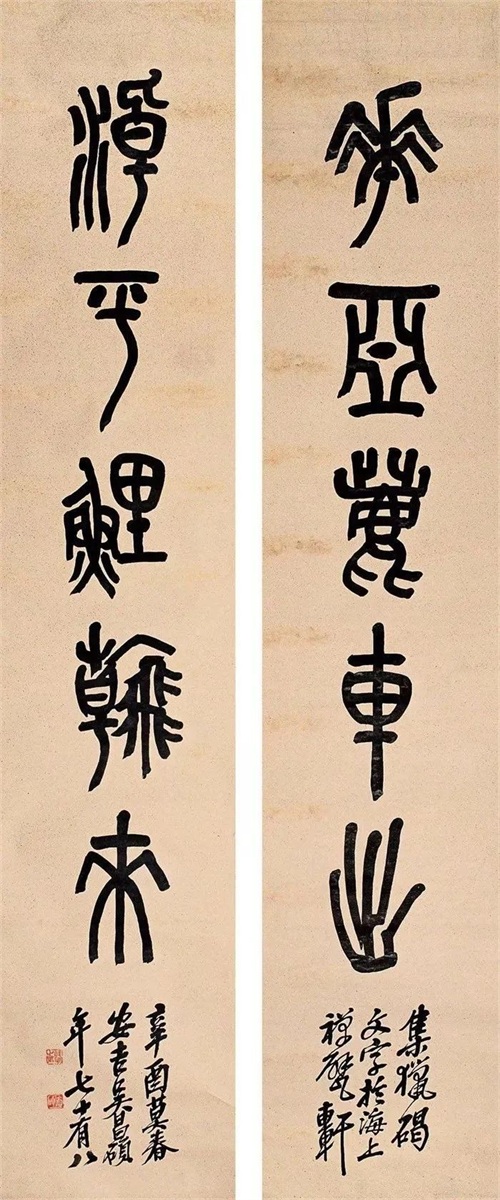 華亞鹿車出
集獵碣
文字於海上
禪甓軒
淖平鯉翰來
辛酉莫春
安吉吳昌碩
年七十有八